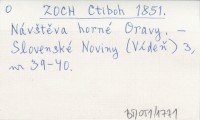 O ZOCH Ctiboh 1851.
Návštěva horné Oravy. –
Slovenské Noviny (Vídeň) 3,
nr 39-40.